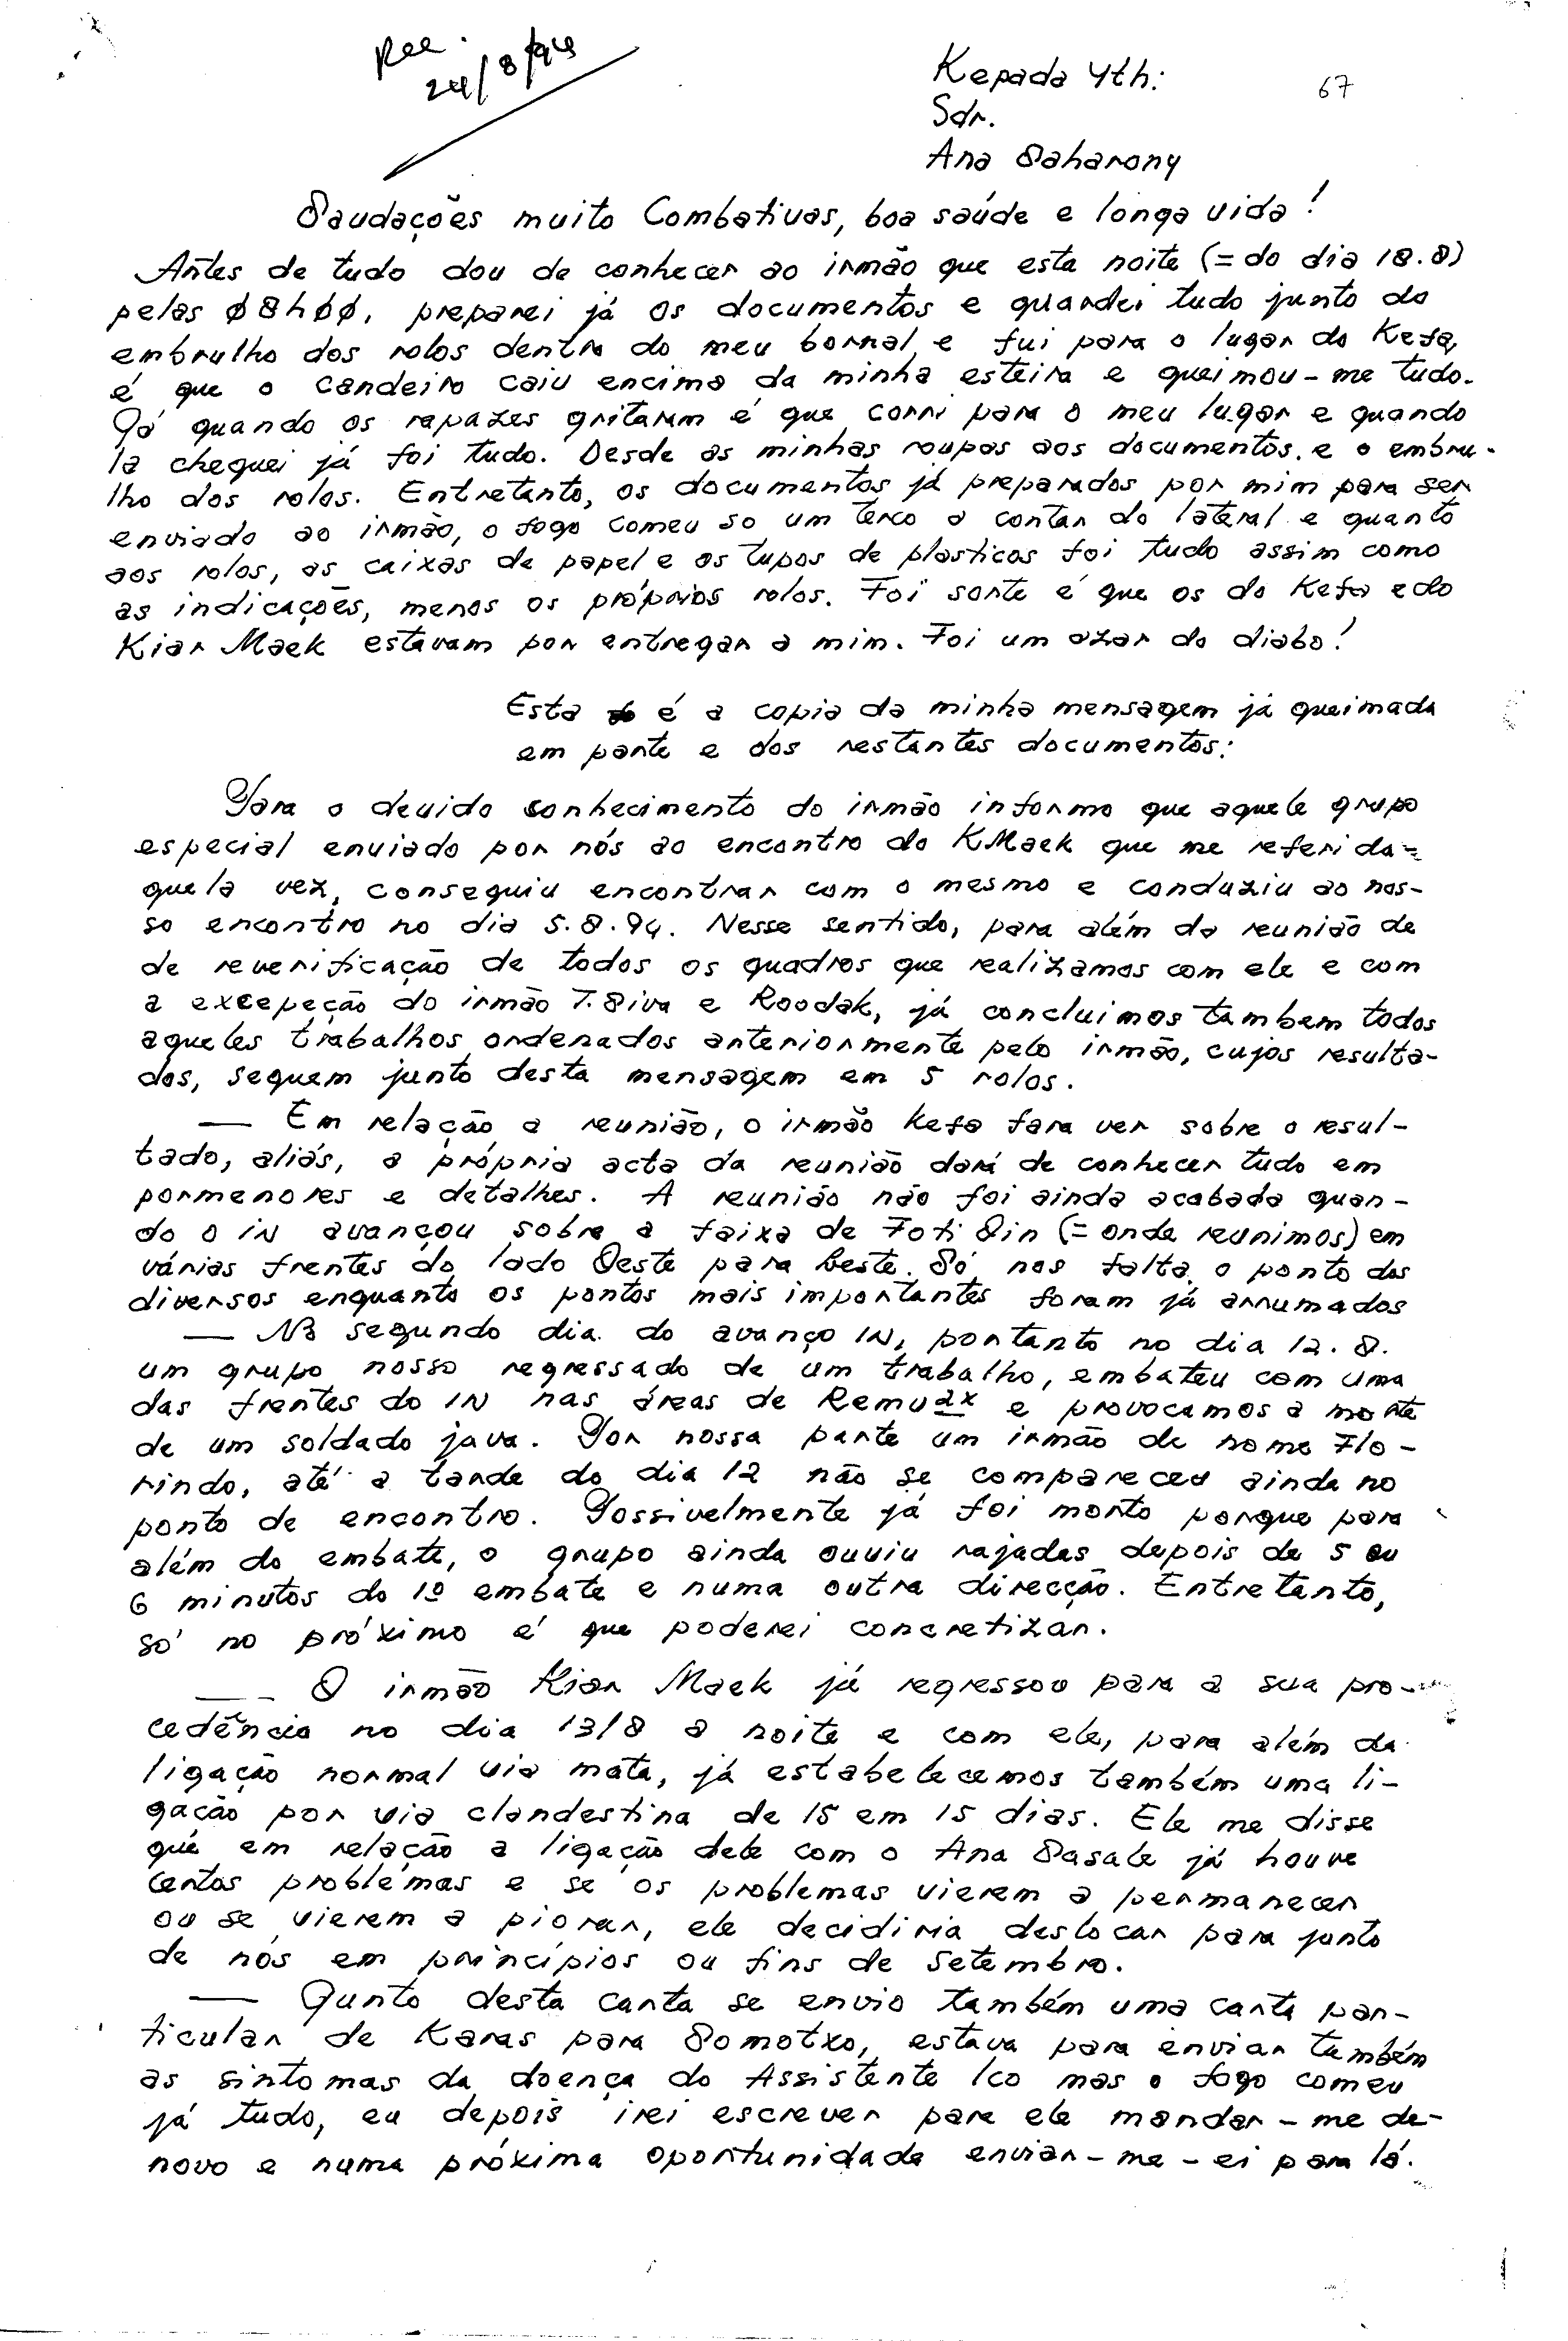 Rec.
24/8/94
67
Kepada Yth:
Sdr.
Ana Saharony
Saudações muito Combativas, boa saúde e longa vida!
Antes de tudo dou de conhecer ao irmão que esta noite (= do dia 18.8)
pelas 08h00, preparei já os documentos e guardei tudo junto do
embrulho dos rolos dentro do meu bornal e fui para o lugar do Kefa,
é que o candeiro caiu encima da minha esteira e queimou-me tudo.
Já quando os rapazes gritaram é que corri para o meu lugar e quando
la cheguei já foi tudo. Desde as minhas roupas aos documentos, e o embru-
lho dos rolos. Entretanto, os documentos já preparados por mim para ser
enviado ao irmão, o fogo comeu so um terco a contar do lateral e quanto
aos rolos, as caixas de papel e os tupos de plasticos foi tudo assim como
as indicações, menos os próprios rolos. Foi sorte é que os do Kefa e do
Kiar Maek estavam por entregar a mim. Foi um azar do diabo!
Esta é a copia da minha mensagem já queimada
em parte e dos restantes documentos:
Para o devido conhecimento do irmão informo que aquele grupo
especial enviado por nós ao encontro do KMaek que me referi da=
quela vez, conseguiu encontrar com o mesmo e conduziu ao nos-
so encontro no dia 5.8.94. Nesse sentido, para além da reunião de
de reverificação de todos os quadros que realizamos com ele e com
a excepeção do irmão T. Siva e Roodak, já concluimos tambem todos
aqueles trabalhos ordenados anteriormente pelo irmão, cujos resulta-
dos, seguem junto desta mensagem em 5 rolos.
— Em relação a reunião, o irmão Kefa fara ver sobre o resul-
tado, aliás, a própria acta da reunião dará de conhecer tudo em
pormenores e detalhes. A reunião não foi ainda acabada quan-
do o IN avançou sobre a faixa de Foti Sin (= onde reunimos) em
várias frentes do lado Oeste para Leste. Só nos falta o ponto dos
diversos enquanto os pontos mais importantes foram já arrumados
— No segundo dia do avanço IN, portanto no dia 12.8.
um grupo nosso regressado de um trabalho, embateu com uma
das frentes do IN nas áreas de Remu2x e provocamos a morte
de um soldado java. Por nossa parte um irmão de nome Flo-
rindo, até a tarde do dia 12 não se compareceu ainda no
ponto de encontro. Possivelmente já foi morto porque para
além do embate, o grupo ainda ouviu rajadas depois de 5 ou
6 minutos do 1º embate e numa outra direcção. Entretanto,
só no próximo é que poderei concretizar.
— O irmão Kiar Maek já regressou para a sua pro-
cedência no dia 13/8 a noite e com ele, para além da
ligação normal via mata, já estabelecemos também uma li-
gação por via clandestina de 15 em 15 dias. Ele me disse
que em relação a ligação dele com o Ana Sasale já houve
certos problemas e se os problemas vierem a permanecer
ou se vierem a piorar, ele decidiria deslocar para junto
de nós em princípios ou fins de Setembro.
— Junto desta carta se envio também uma carta par-
ticular de Karas para Somotxo, estava para enviar também
as sintomas da doença do Assistente Ico mas o fogo comeu
já tudo, eu depois irei escrever para ele mandar-me de-
novo e numa próxima oportunidade enviar-me-ei para lá.